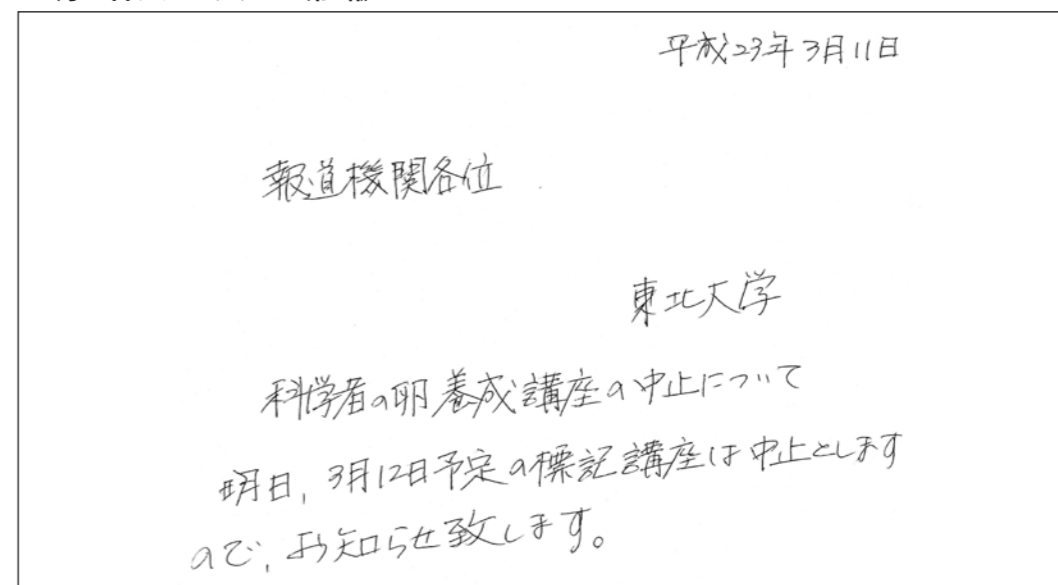 平成23年3月11日
報道機関各位
東北大学
科学者の卵養成講座の中止について
明日,3月12日予定の標記講座は中止とします
ので,お知らせ致します。